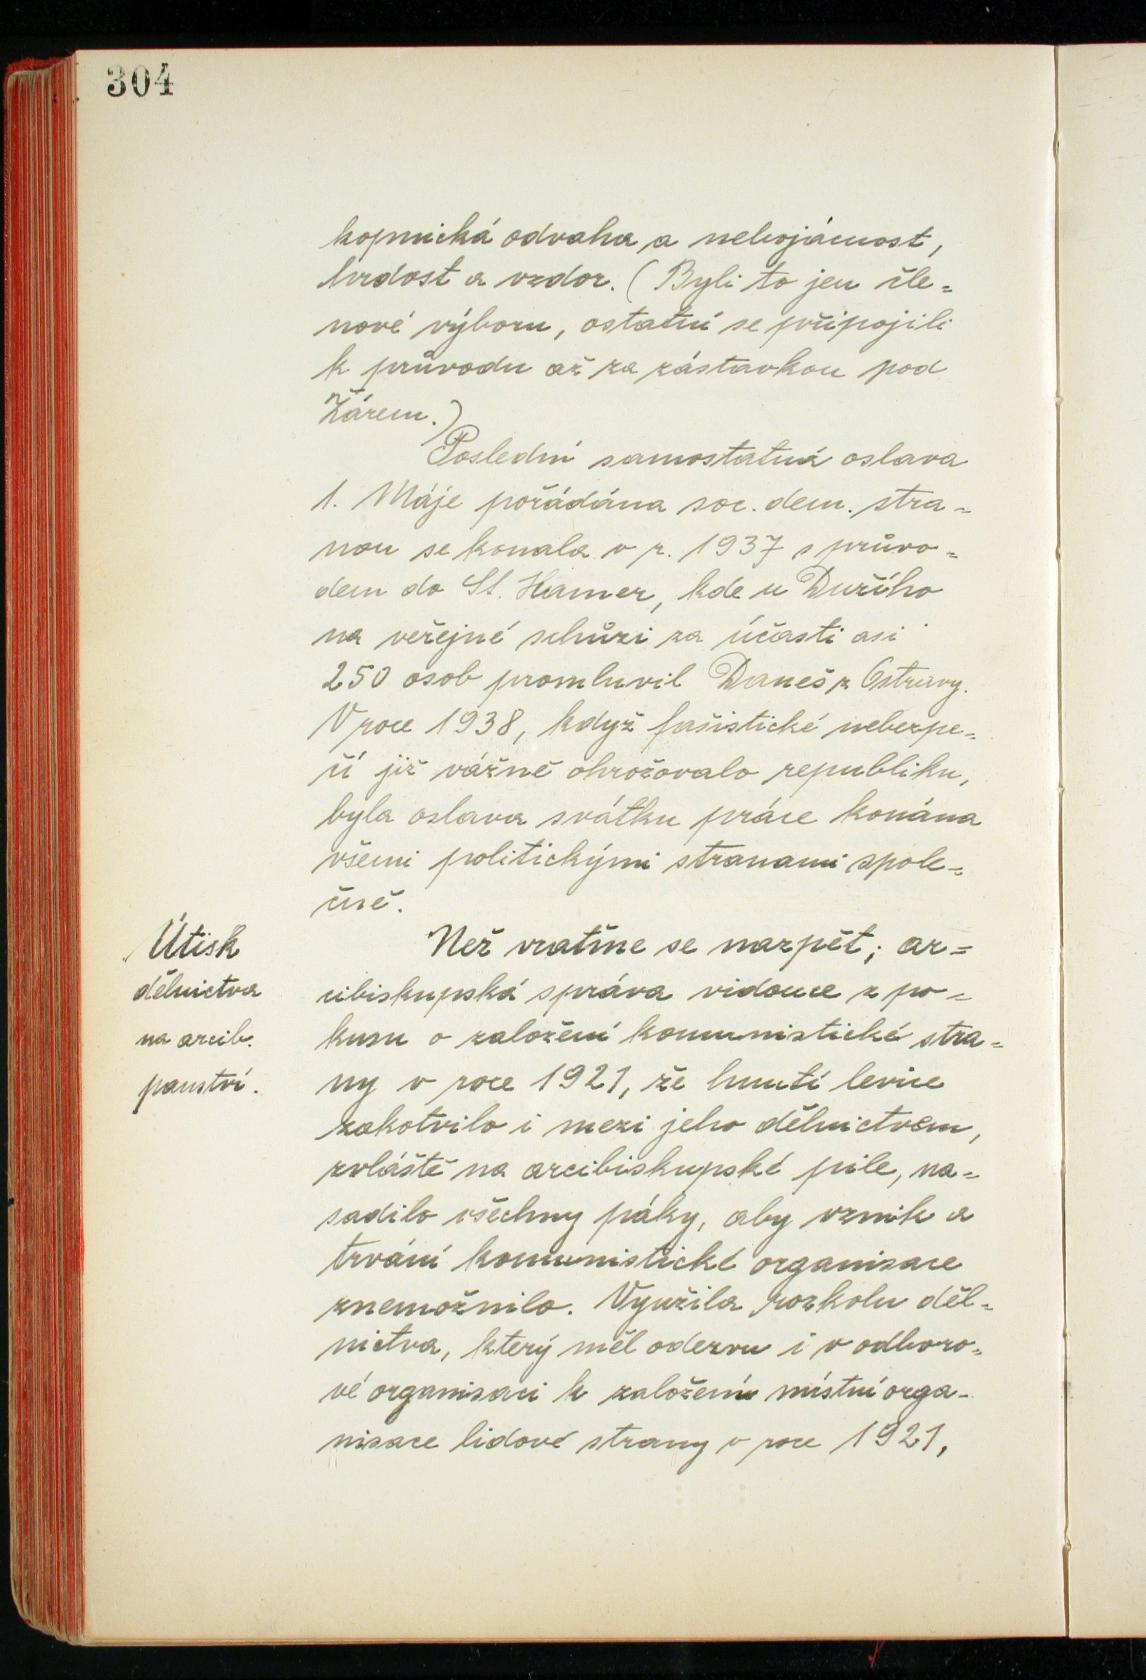 304
kopnická odvaha a nebojácnost,
hrdost a vzdor. (Byli to jen čle-
nové výboru, ostatní se připojili
k průvodu až za zástavkou pod
Žárem.)
Poslední samostatná oslava
1. Máje pořádána soc. dem. stra-
nou se konala v r. 1937 s průvo-
dem do St. Hamer, kde u Duřího
na veřejné schůzi za účasti asi
250 osob promluvil Daneš z Ostravy.
V roce 1938, když fašistické nebezpe-
čí již vážně ohrožovalo republiku,
byla oslava svátku práce konána
všemi politickými stranami spole-
čně.
Útisk
dělnictva
na arcib.
panství.
Než vraťme se nazpět; ar-
cibiskupská správa vidouce z po-
kusu o založení komunistické stra-
ny v roce 1921, že hnutí levice
zakotvilo i mezi jeho dělnictvem,
zvláště na arcibiskupské pile, na-
sadilo všechny páky, aby vznik a
trvání komunistické organisace
znemožnilo. Využila rozkolu děl-
nictva, který měl odezvu i v odboro-
vé organisaci k založení místní orga-
nisace lidové strany v roce 1921,